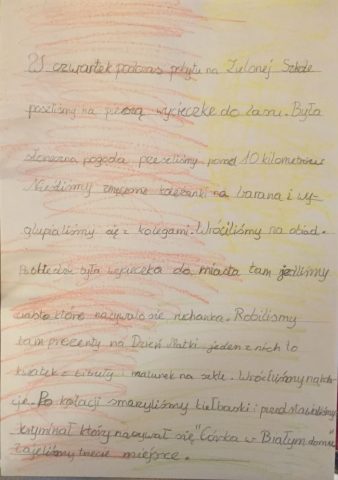 W czwartek podczas pobytu na Zielonej Szkole
poszliśmy na pieszą wycieczkę do Łasni. Była
słoneczna pogoda przeszliśmy ponad 10 kilometrów
Nieśliśmy zmęczone koleżanki na barana i wy-
głupialiśmy się z kolegami. Wróciliśmy na obiad.
Po obiedzie była wycieczka do miasta tam jedliśmy
ciasto które nazywało się ruchanka. Robilismy
tam prezenty na Dzień Matki jeden z nich to
kwiatek z bibuły i malunek na szkle. Wróciliśmy na kola-
cje. Po kolacji smarzyliśmy kiełbaski i przedstawialiśmy
kryminał który nazywał się "Córka w Białym domu"
Zajeliśmy trzecie miejsce.